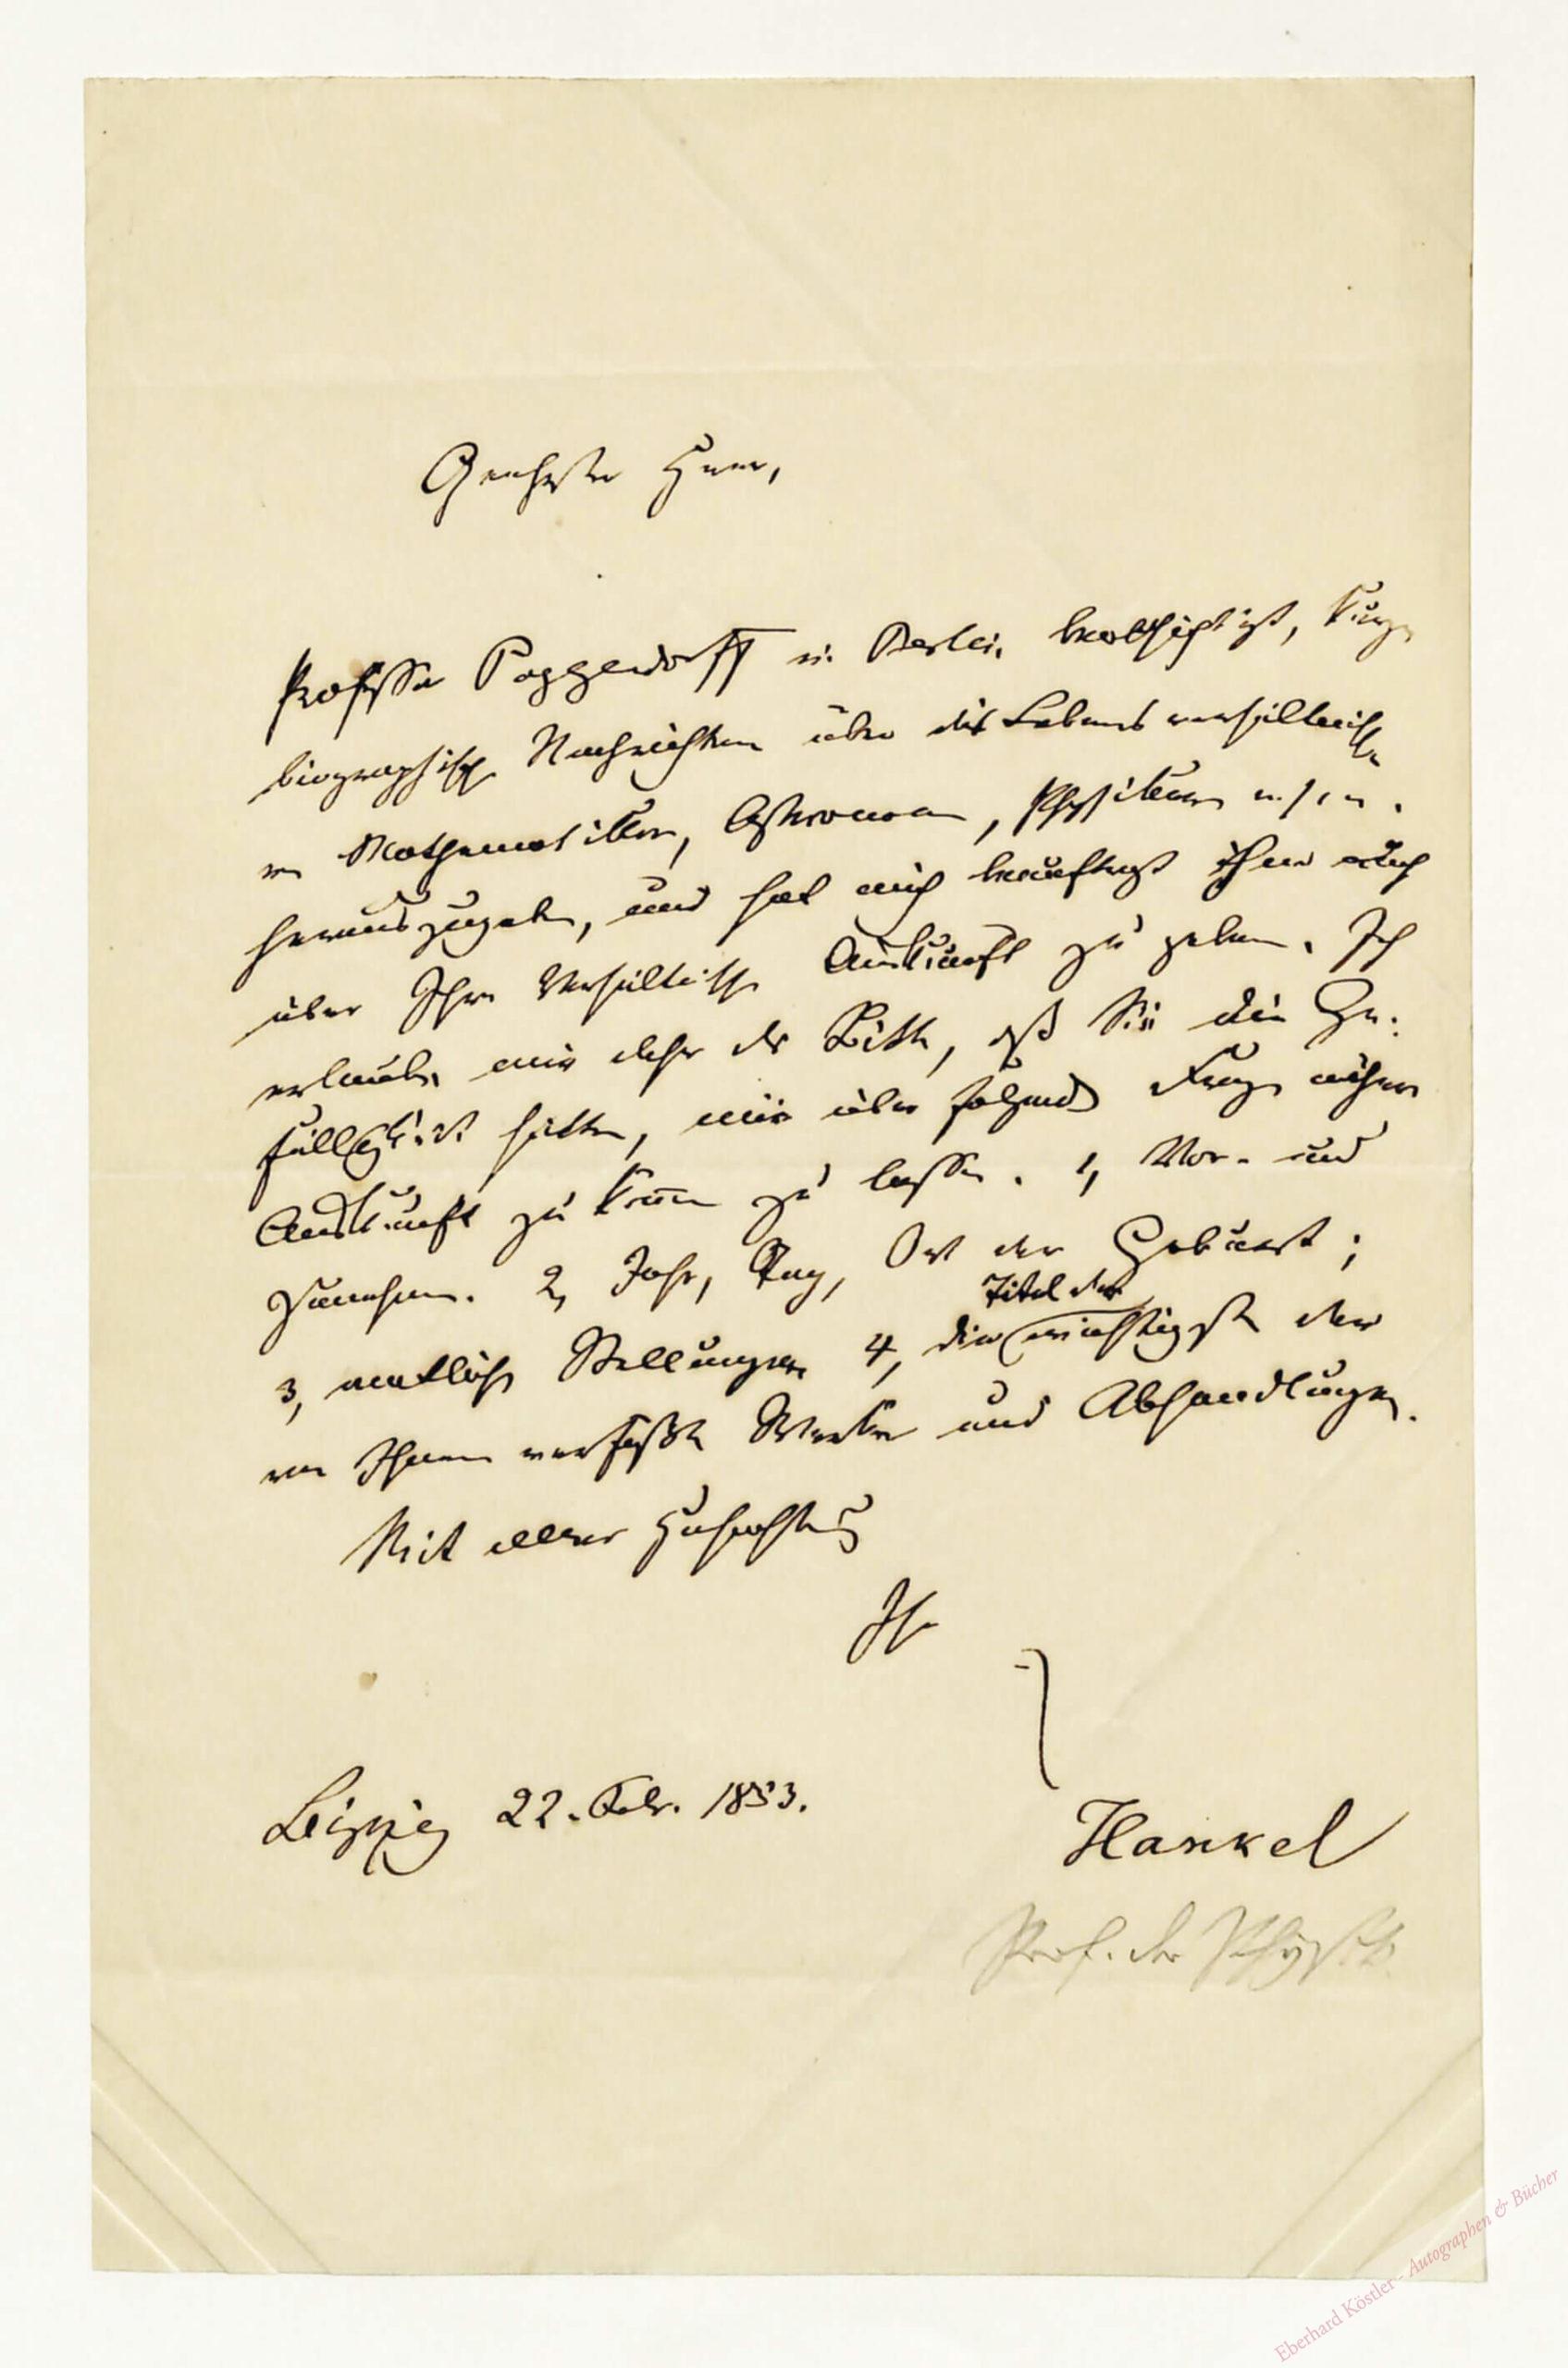 Geehrter Herr,
Professor Poggendorff in Berlin beabsichtigt, kurze
biographische Nachrichten über die Lebensverhältnisse
von Mathematikern, Astronomen, Physikern u. s. w.
herauszugeben, und hat mich beauftragt ihm auch
über Ihre Verhältnisse Auskunft zu geben. Ich
erlaube mir daher die Bitte, daß Sie die Ge-
fälligkeit hätten, mir über folgende Fragen nähere
Auskunft zu kommen zu lassen. 1, Vor- und
Zunahmen. 2, Jahr, Tag, Ort der Geburt;
3, amtliche Stellungen 4, die Titel der wichtigsten der
von Ihnen verfaßten Werke und Abhandlungen.
Mit aller Hochachtung
Ihr
Leipzig 22. Febr. 1853.
Hankel
Prof. der Physik
Eberhard Köstler - Autographen & Bücher